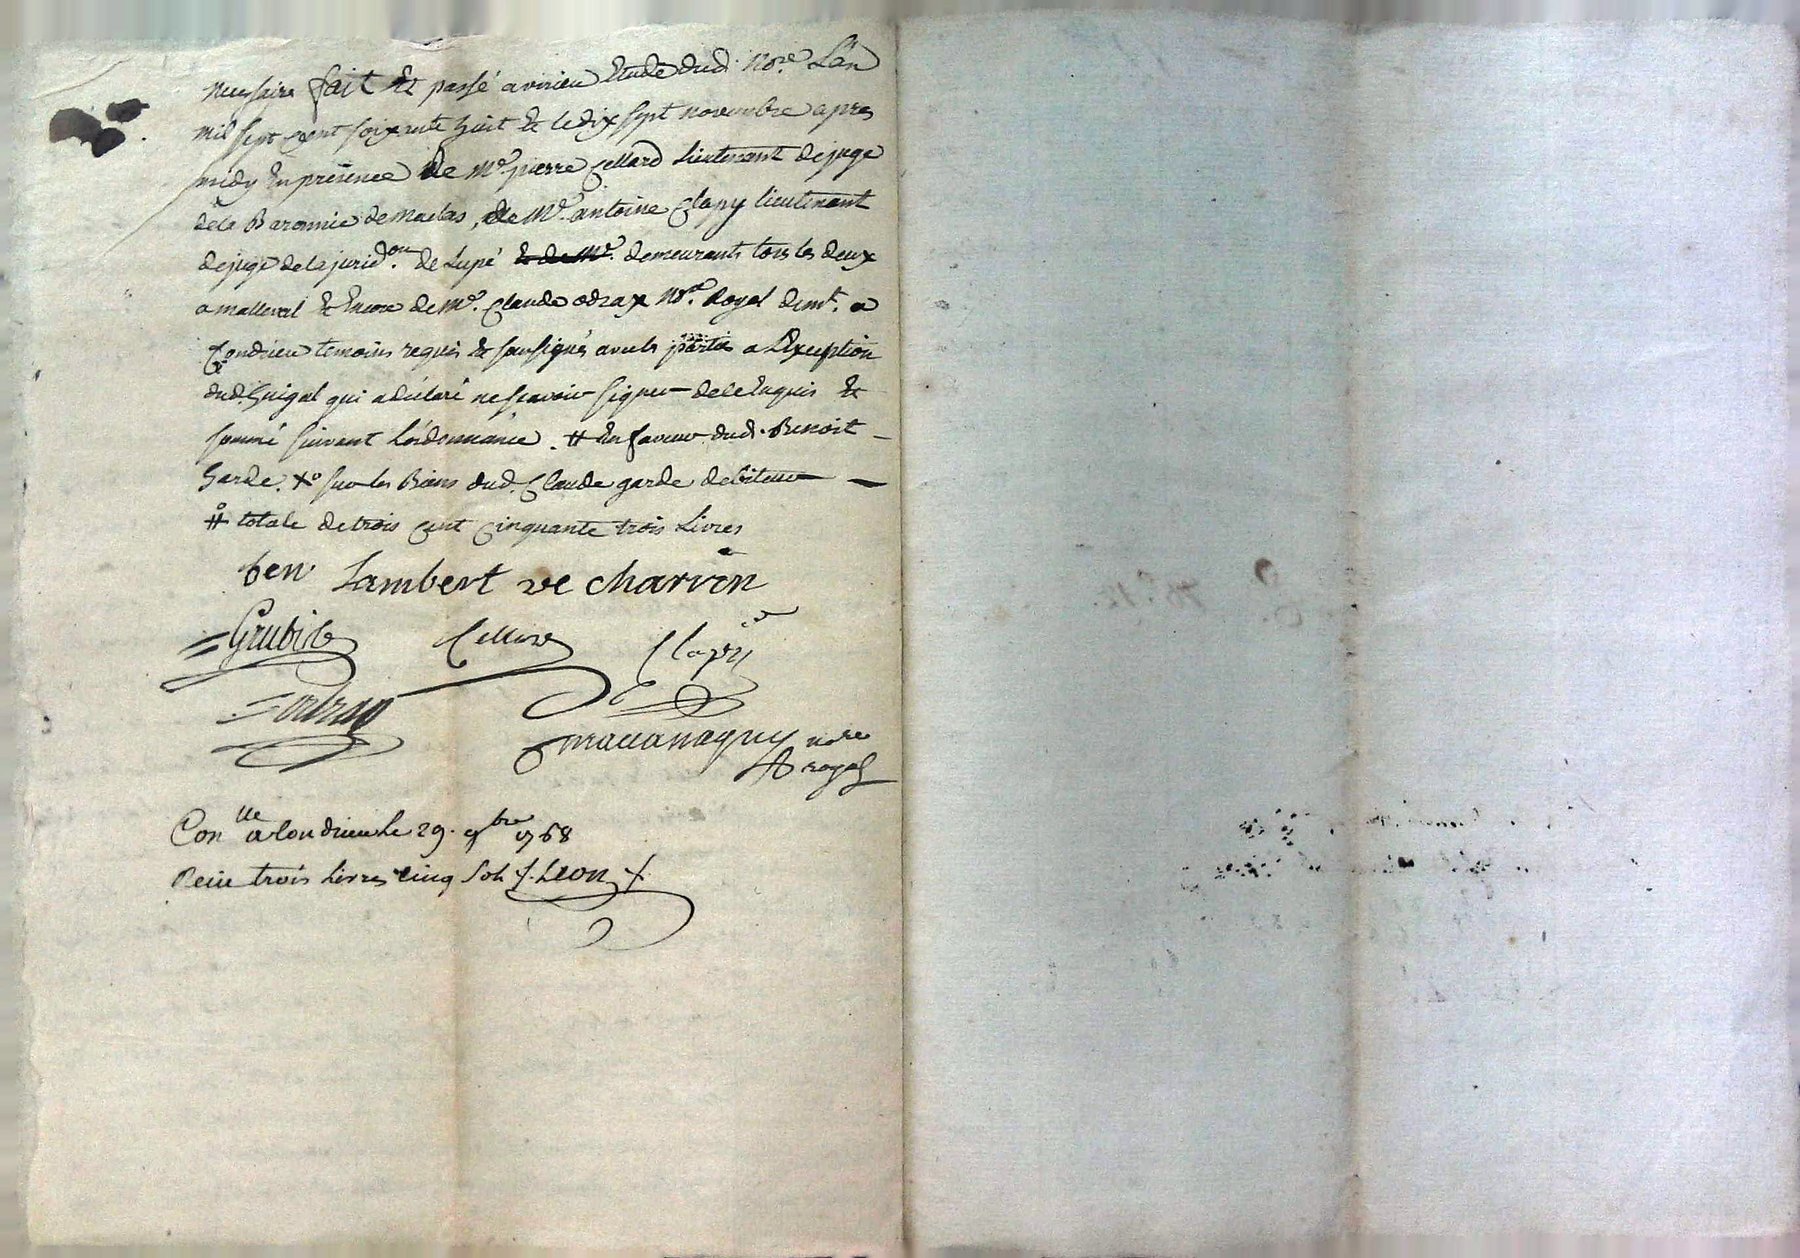 necessaire fait et passé a virieu Etude dud. No.re L'an
mil sept cent soixante huit et le dix sept novembre apres
midy En présence de Me. pierre Cellard Lieutenant de juge
de la Baronnie de maclas, de Me. antoine Clapy lieutenant
de juge de la jurid.on de Lupé et de Me. demeurants tous les deux
a malleval et Encore de Me. Claude odrax No.re Royal demt. a
Condrieu temoins requis et soussignés avec les parties a L'Exception
dud. Guigal qui a déclaré ne scavoir signer de ce Enquis et
sommé suivant L'ordonnance. # En faveur dud. Benoit
Garde. X° sur les Biens dud. Claude garde debiteur
# totale de trois cent cinquante trois Livres
ben Lambert ve charvin
Cellard Clapy
odrax
no.re
royal
Con.lle a Condrieu le 29. 9bre 1768
Recu trois livres cinq sols Leon